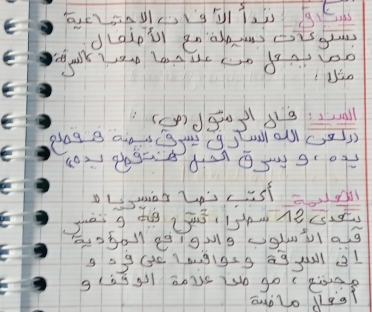 سياق: تبدأ الآفات الاجتماعية
بسلوكات بسيطة مع الأطفال
مما يجعل من علاجها صعبا كالسرقة
مثلا.
السند: قال الرسول (ص):
((لعن الله السارق يسرق بيضة فتقطع
يده، ويسرق الحبل فتقطع يده))
التعليمة: أكتب نصا تفسيريا لا
يتعدى 12 سطرا، وتفسر
فيه الأسلوب والدوافع المؤدية
إلى السرقة وعواقبها على فرد و
مجتمع، موظفا علامة الوقف و
أفعال ماضية